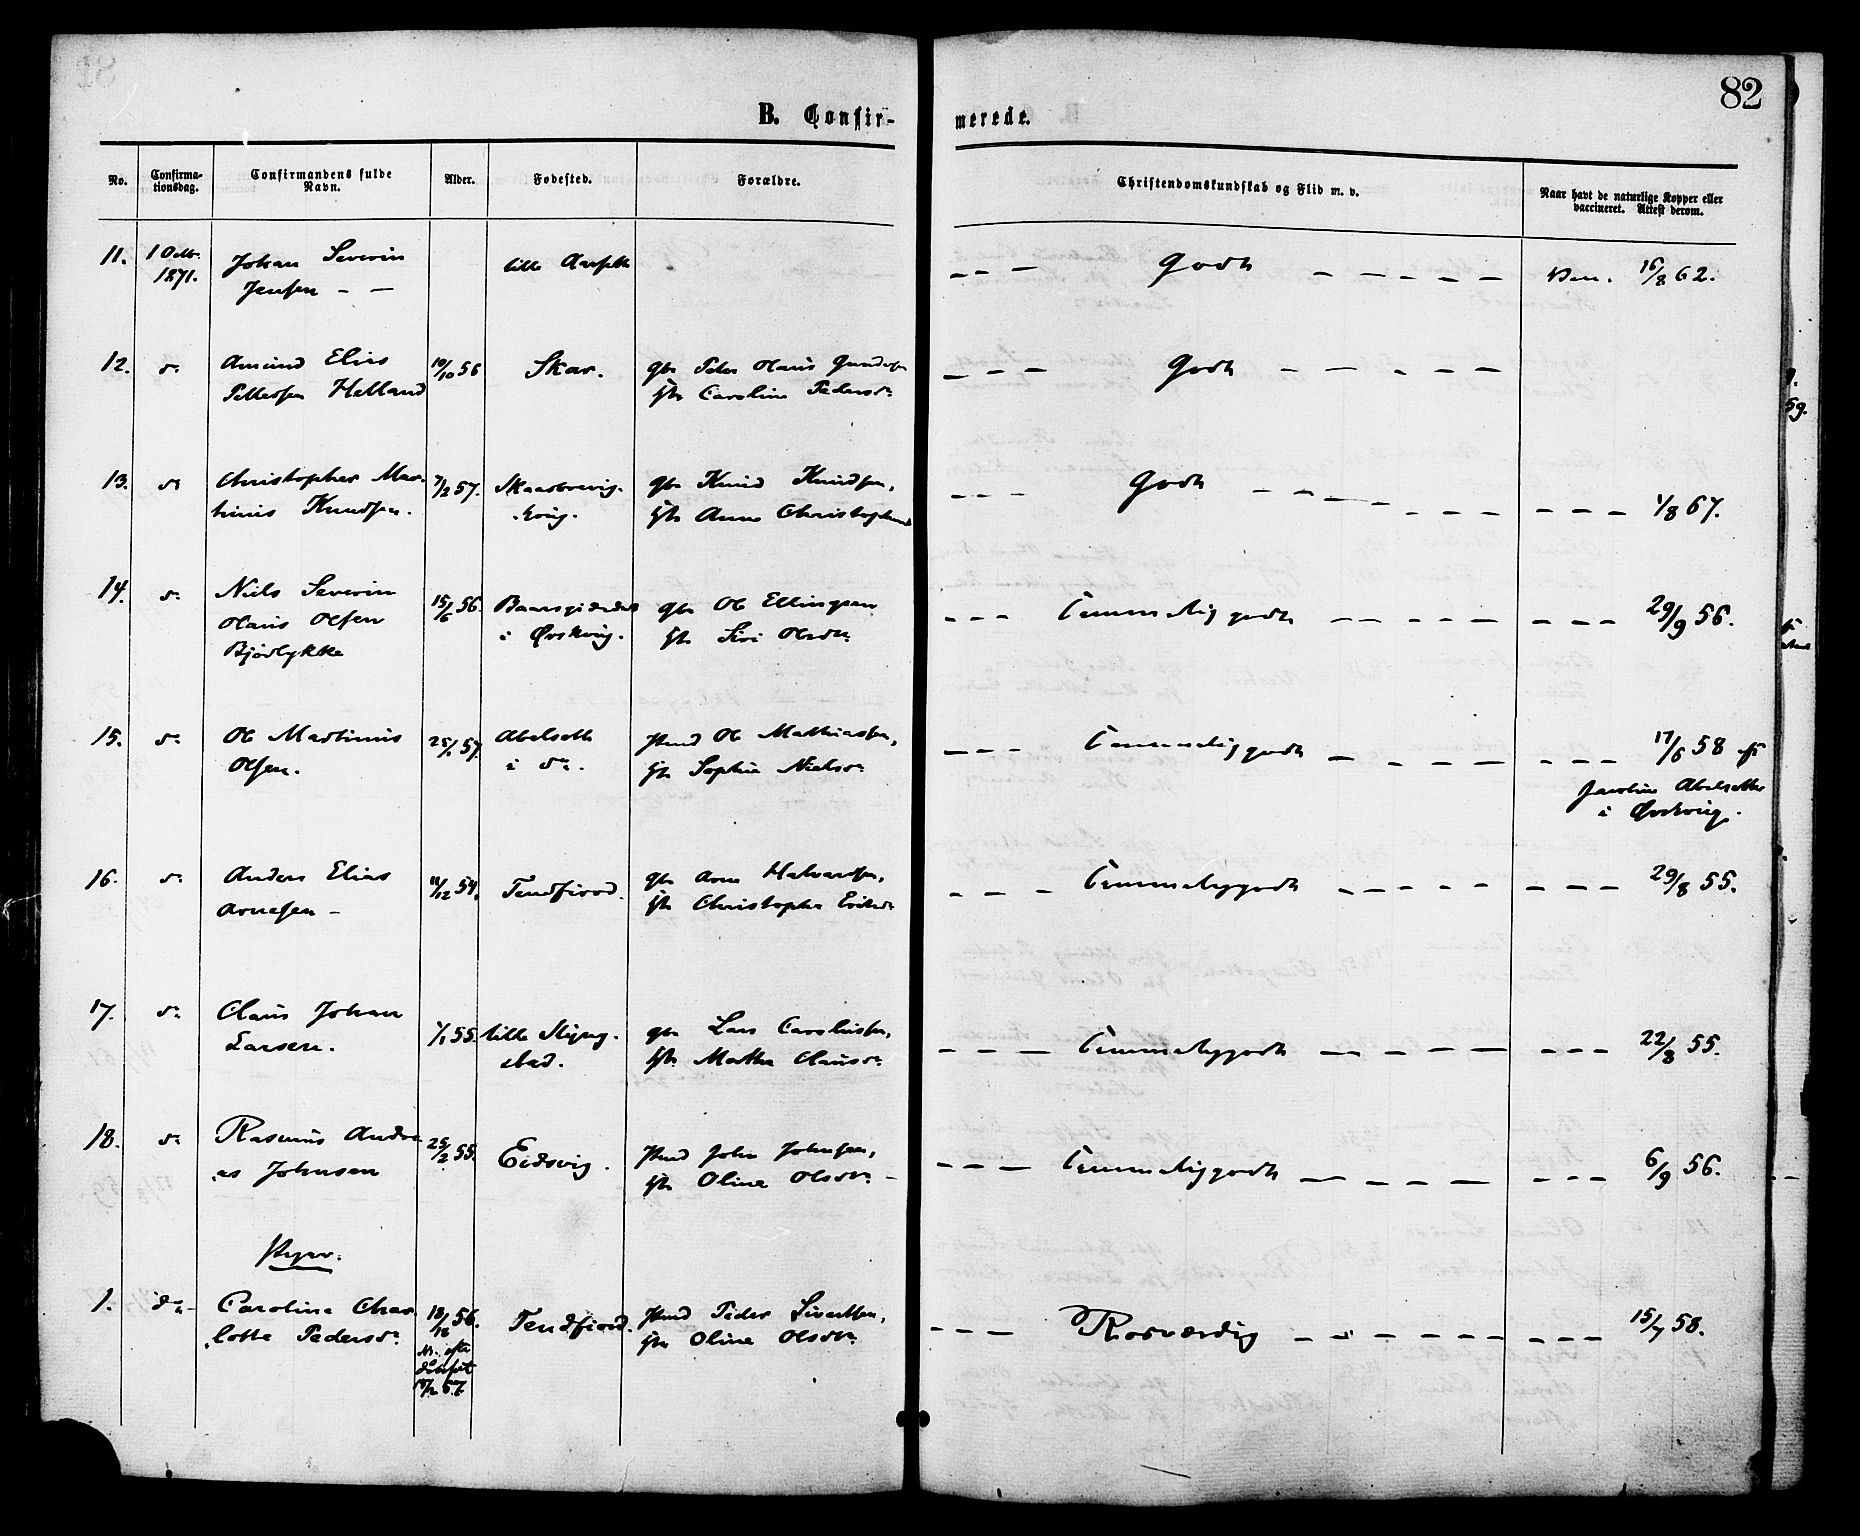 82
B. Confirmerede.
No.
Confirma-
tionsdag.
Confirmandens fulde
Navn.
Alder.
Fødested.
Forældre.
Christendomskundskab og Flid m. v.
Naar havt de naturlige Kopper eller
vaccineret. Attest derom.
11. 1 Octbr. 1871. Johan Severin
Jensen - - lille - - - Godt - - - - - 16/8 62.
12. do Amund Elias
Pettersen Helland 10/10 56 Skar. Peder Olaus
Caroline Pedersdr - - - Godt - - - - -
13. do Christopher Mar-
tinus Knudsen. 7/2 57. Knud Knudsen,
Anne - - - Godt - - - - - - - - - 1/8 67.
14. do Niels Severin
Olaus Olsen
Bjørlykke 15/6 56. i Ørskoug. Ole Ellingsen
Siri Olsdr - - - Temmelig godt - - - - - - - - 29/9 56.
15. do Ole Martinus
Olsen. 25/1 57. Abelsette
i do. Ole Mathiassen,
Sophie Nielsdr - - - Temmelig godt - - - - - - - - 17/6 58
Abelsette
i Ørskoug.
16. do Anders Elias
Arnesen - 11/12 54. Tendfiord. Arne Halvardsen,
Christophe - - - Temmelig godt - - - - - - - - 29/8 55.
17. do Claus Johan
Larsen. 1/1 55. lille Styng-
stad. Lars Carolussen,
Marthe Clausdr - - - Temmelig godt - - - - - - - - 22/8 55.
18. do Rasmus Andre-
as Johnsen 25/2 55. Eidsvig. John Johnsen,
Oline Olsdr - - - - Temmelig godt - - - - - - - - 6/9 56.
Piger.
1. do Caroline Char-
lotte Pedersdr 18/12 56. Tendfiord. Peder Sivertsen,
Oline Olsdr - - - Rosværdig - - - - - - - - - 15/7 58.